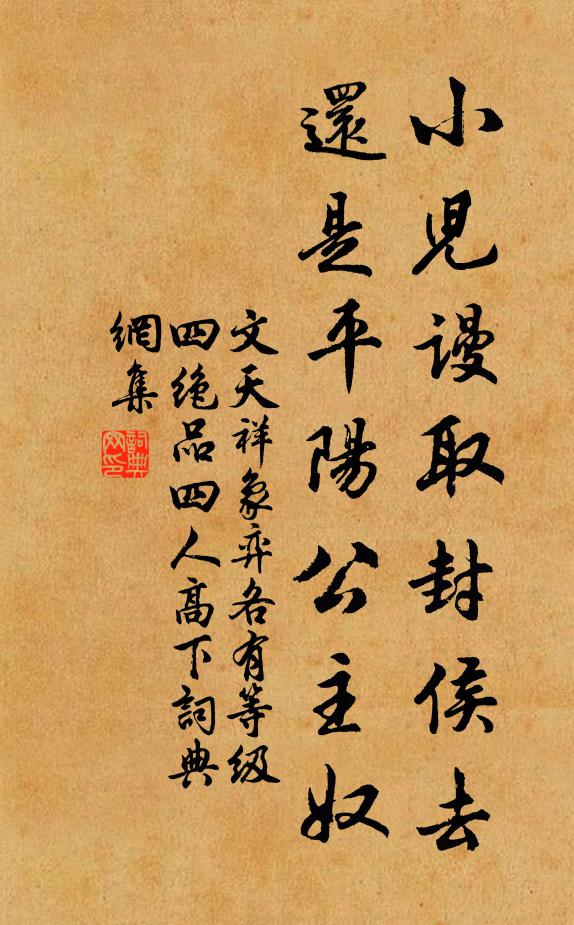 小兒謾取封侯去
還是平陽公主奴
文天祥象弈各有等級
四絶品四人高下詞典
網集
詞典
网印